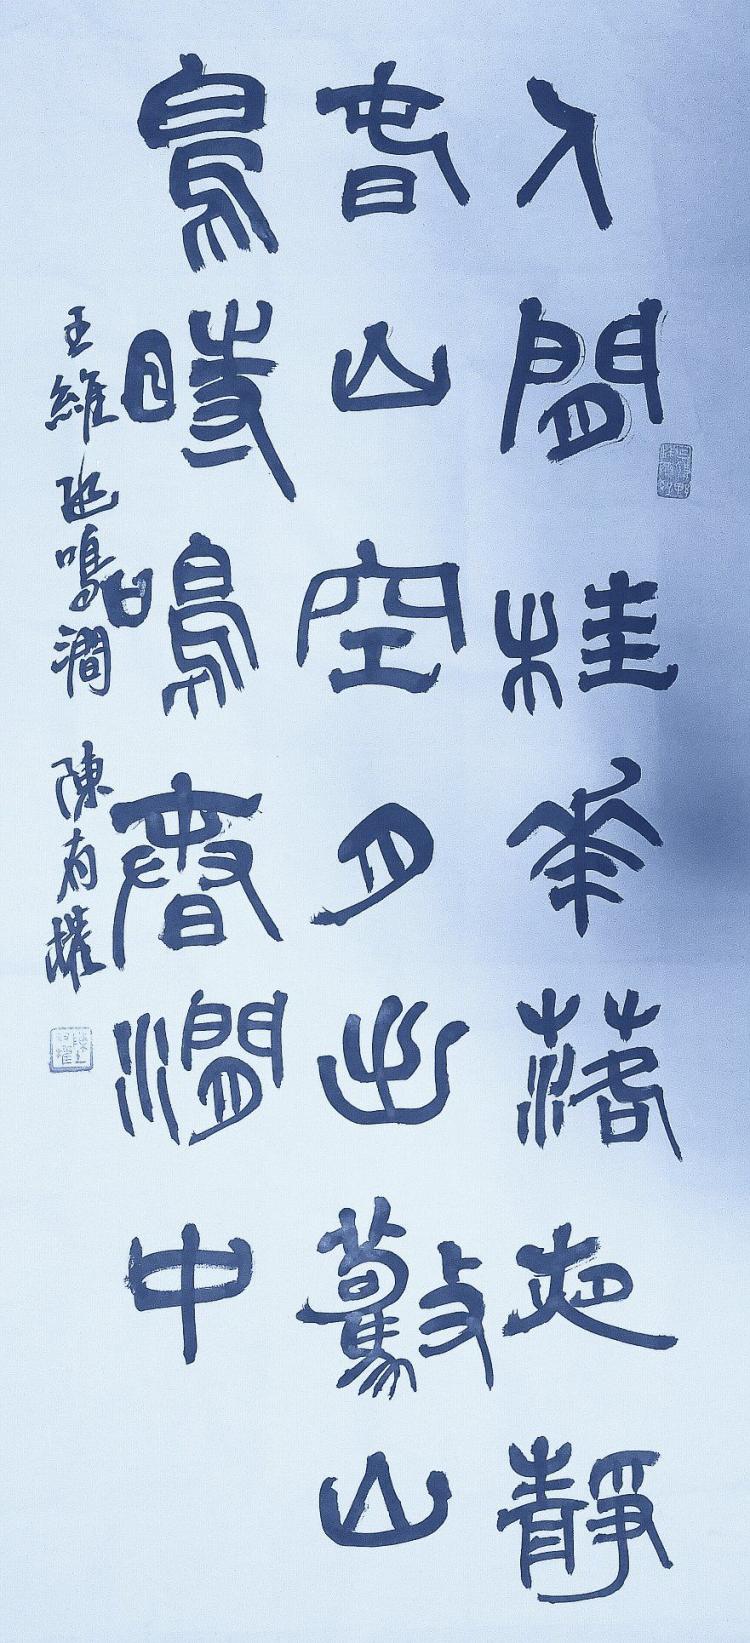 人閒桂花落夜靜
春山空月出驚山
鳥時鳴春澗中
王維 鳥鳴澗 陳有權